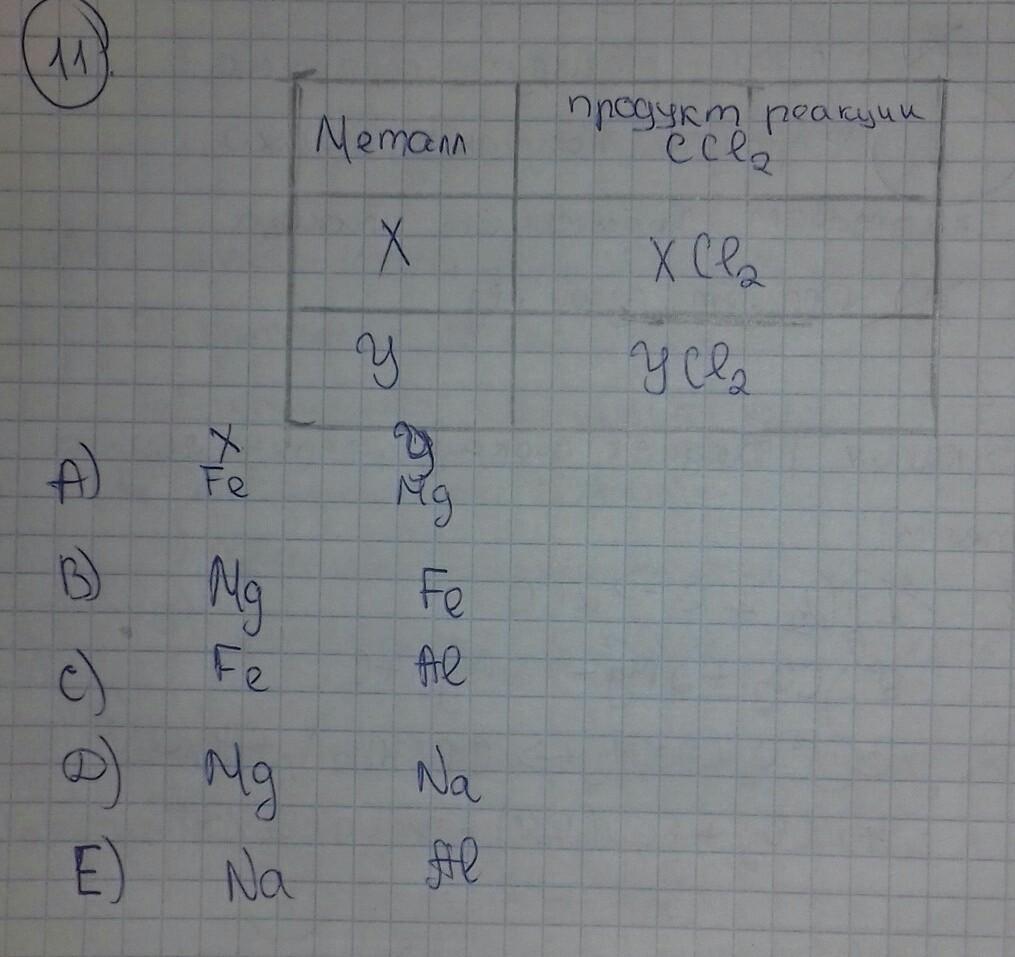 11.
Металл продукт реакции
с Cl2
X XCl2
У УCl2
X У
A) Fe Mg
B) Mg Fe
C) Fe Al
D) Mg Na
E) Na Al